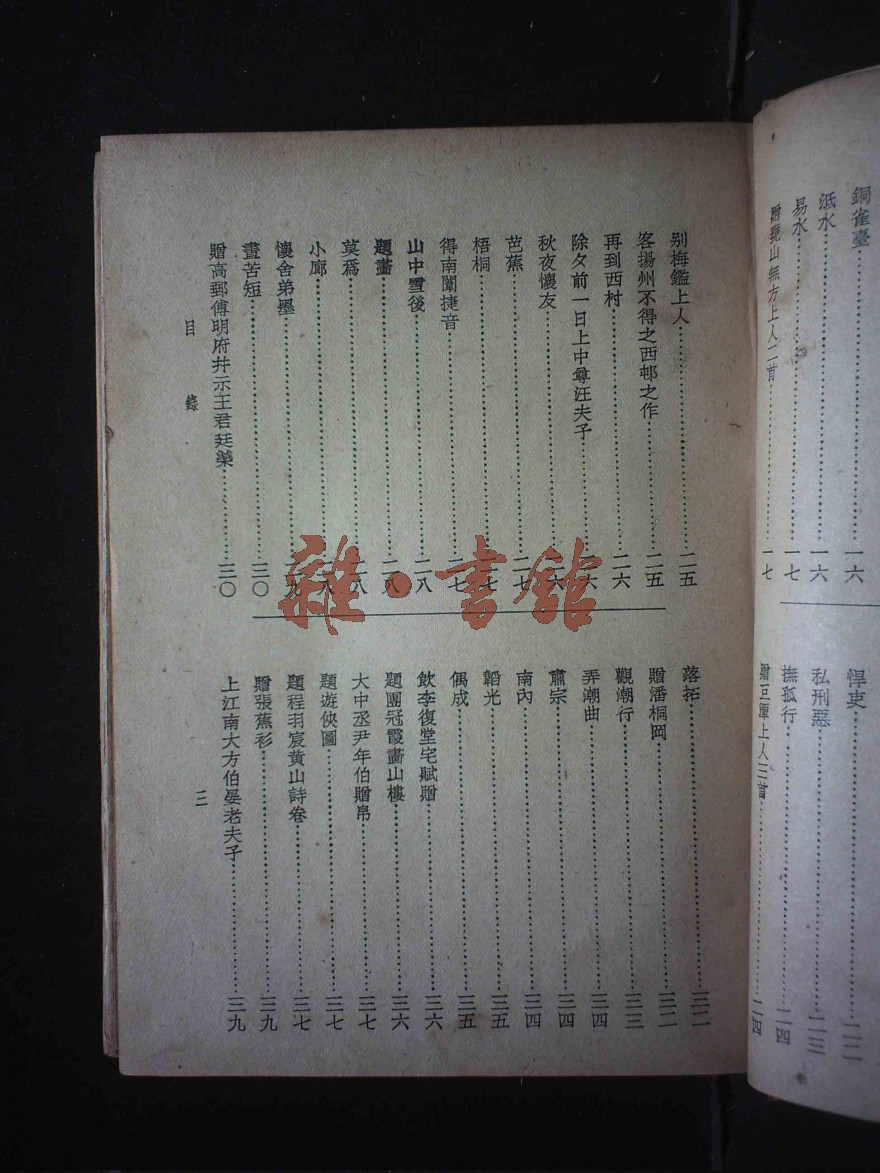 銅雀臺……一六
泜水……一六
易水……一七
贈甕山無方上人二首……一七
悍吏……二二
私刑惡……二三
撫孤行……二四
贈巨潭上人三首……二四
别梅鑑上人……二五
客揚州不得之西邨之作……二五
再到西村……二六
除夕前一日上中尊汪夫子……二六
秋夜懷友……二六
芭蕉……二七
梧桐……二七
得南闈捷音……二七
山中雪後……二八
題畫……二八
莫爲……二八
小廊……二八
懷舍弟墨……二九
晝苦短……三〇
贈高郵傅明府并示王君廷𦸅……三〇
落拓……三二
贈潘桐岡……三二
觀潮行……三三
弄潮曲……三四
肅宗……三四
南內……三四
韜光……三五
偶成……三五
飲李復堂宅賦贈……三六
題團冠霞畫山樓……三六
大中丞尹年伯贈帛……三七
題遊俠圖……三七
題程羽宸黄山詩卷……三七
贈張蕉衫……三九
上江南大方伯晏老夫子……三九
目錄
三
雜·書館